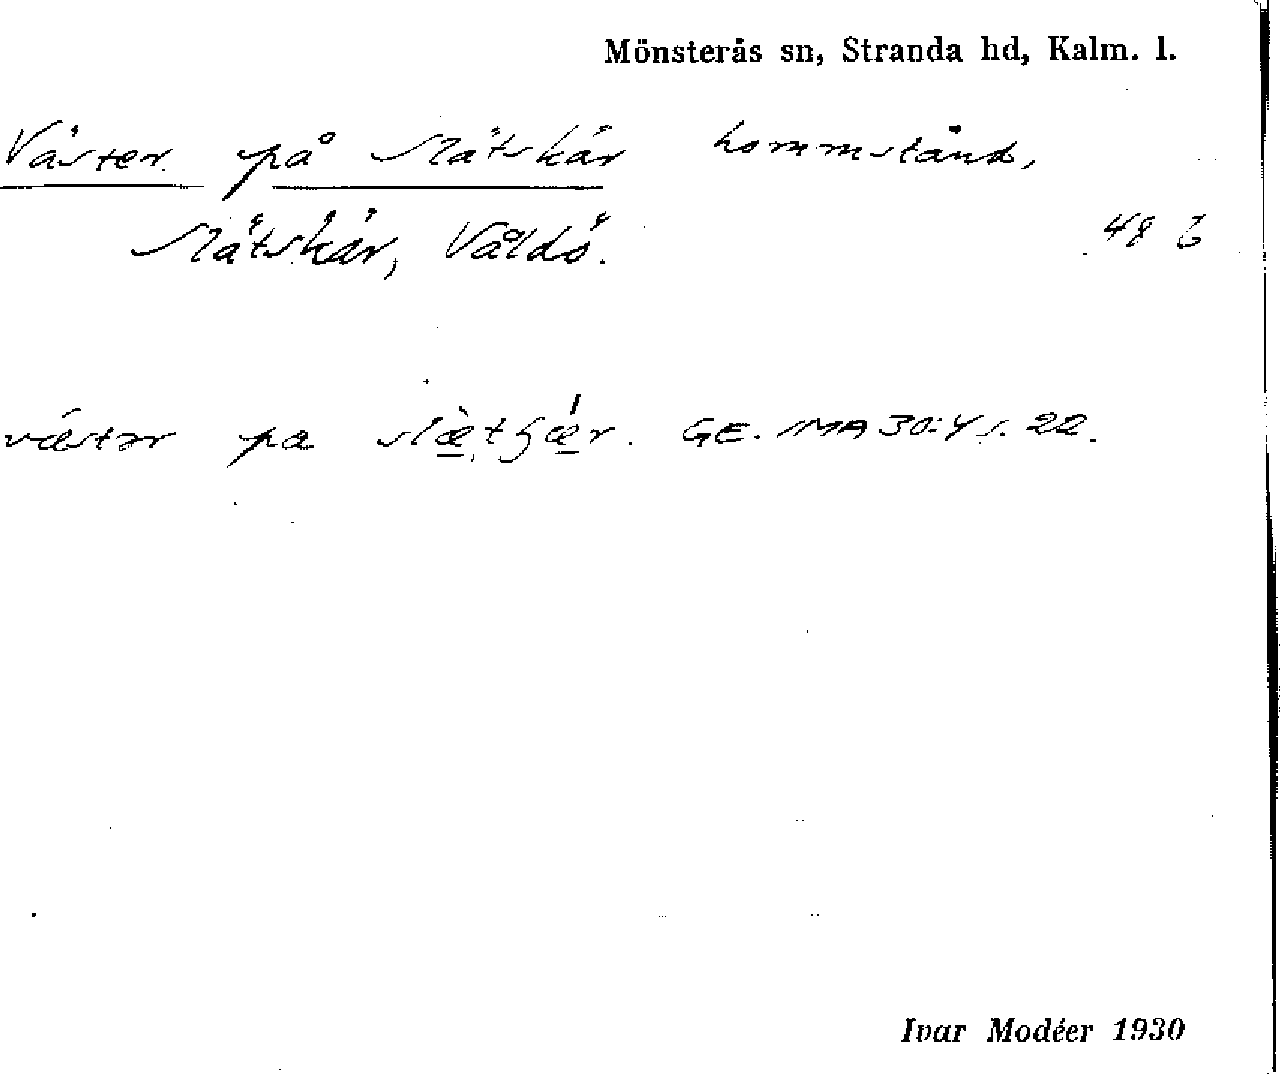 Mönsterås sn, Stranda hd, Kalm. l.
Väster på Slätskär hommstånd,
Slätskär, Våldö. 48 b
væstər pa slæ̀tʂæ̀r. GE. SMA 30:4 s. 22.
Ivar Modéer 1930